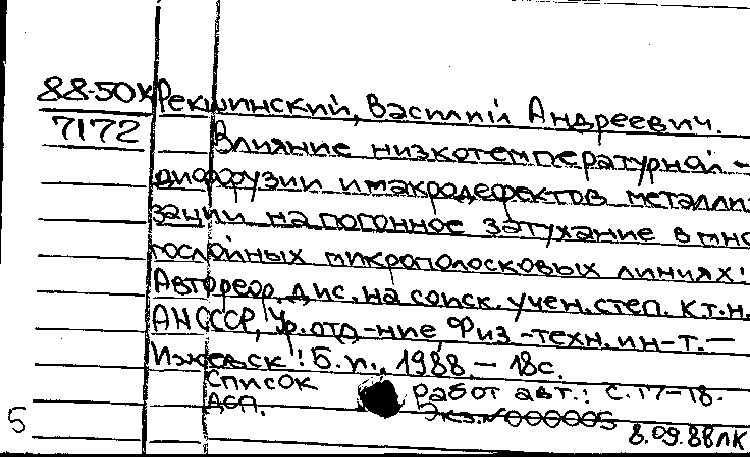 88-50к Рекшинский, Василий Андреевич.
7172 Влияние низкотемпературной
диффузии и макродефектов металли-
зации на погонное затухание в мно
гослойных микрополосковых линиях:
Автореф. дис. на соиск. учен. степ. к.т.н.
АН СССР, Ур. отд-ние, Физ.-техн. ин-т. —
Ижевск: Б. и., 1988. — 18с.
Список работ авт.: с. 17-18.
ДСП. Экз. N 000005
5 8.09.88 ЛК